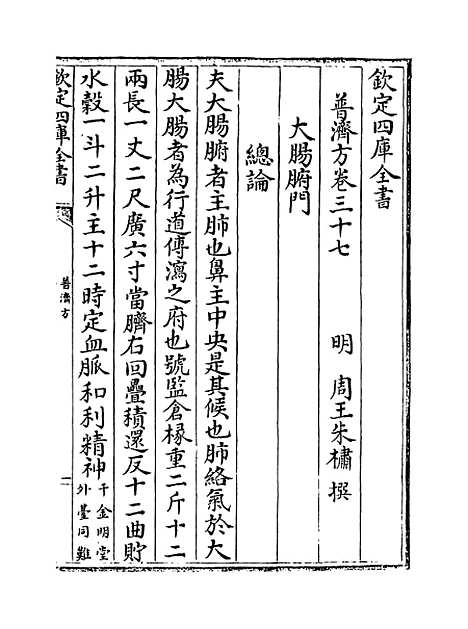 欽定四庫全書
普濟方卷三十七
明 周王朱橚 撰
大腸腑門
總論
夫大腸腑者主肺也鼻主中央是其候也肺絡氣於大
腸大腸者為行道傳瀉之府也號監倉椽重二斤十二
兩長一丈二尺廣六寸當臍右回疊積還反十二曲貯
水穀一斗二升主十二時定血脈和利精神千金明堂外臺同難
欽定四庫全書
普濟方
一